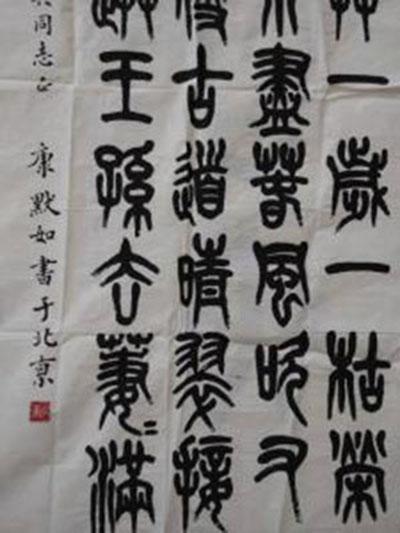 一歲一枯榮
盡春風吹又
古道晴翠接
王孫去萋〻滿
同志正 康默如書于北京